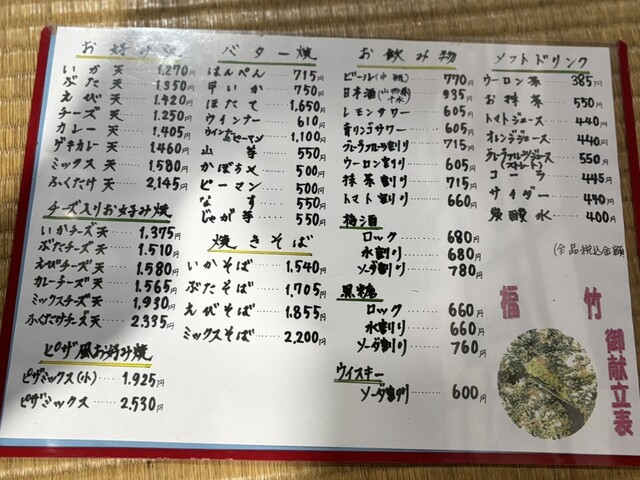 お好み焼
いか天 1,270円
ぶた天 1,350円
えび天 1,420円
チーズ天 1,250円
カレー天 1,405円
ゲキカレー天 1,460円
ミックス天 1,580円
ふくたけ天 2,145円
チーズ入りお好み焼
いかチーズ天 1,375円
ぶたチーズ天 1,510円
えびチーズ天 1,580円
カレーチーズ天 1,565円
ミックスチーズ天 1,930円
ふくたけチーズ天 2,335円
ピザ風お好み焼
ピザミックス(小) 1,925円
ピザミックス 2,530円
バター焼
はんぺん 715円
甲いか 750円
ほたて 1,650円
ウインナー 610円
ピーマン 1,100円
山芋 550円
かぼちゃ 500円
ピーマン 500円
なす 550円
じゃが芋 550円
焼きそば
いかそば 1,540円
ぶたそば 1,705円
えびそば 1,855円
ミックスそば 2,200円
お飲み物
ビール(中瓶) 770円
日本酒 935円
レモンサワー 605円
青リンゴサワー 605円
グレープフルーツ割り 715円
ウーロン割り 605円
抹茶割り 715円
トマト割り 660円
梅酒
ロック 680円
水割り 680円
ソーダ割り 780円
黒糖
ロック 660円
水割り 660円
ソーダ割り 760円
ウイスキー
ソーダ割り 600円
ソフトドリンク
ウーロン茶 385円
お抹茶 550円
トマトジュース 440円
オレンジジュース 440円
グレープフルーツジュース(ストレート) 550円
コーラ 445円
サイダー 440円
炭酸水 400円
(全品税込金額)
福竹
御献立表